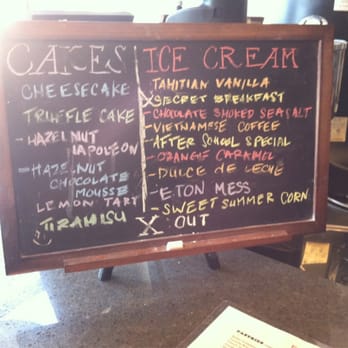 CAKES
CHEESECAKE
TRUFFLE CAKE
- HAZELNUT
NAPOLEON
- HAZELNUT
CHOCOLATE
MOUSSE
LEMON TART
TIRAMISU
ICE CREAM
TAHITIAN VANILLA
X SECRET BREAKFAST
- CHOCOLATE SMOKED SEA SALT
- VIETNAMESE COFFEE
- AFTER SCHOOL SPECIAL
- ORANGE CARAMEL
- DULCE DE LECHE
- ETON MESS
- SWEET SUMMER CORN
X OUT